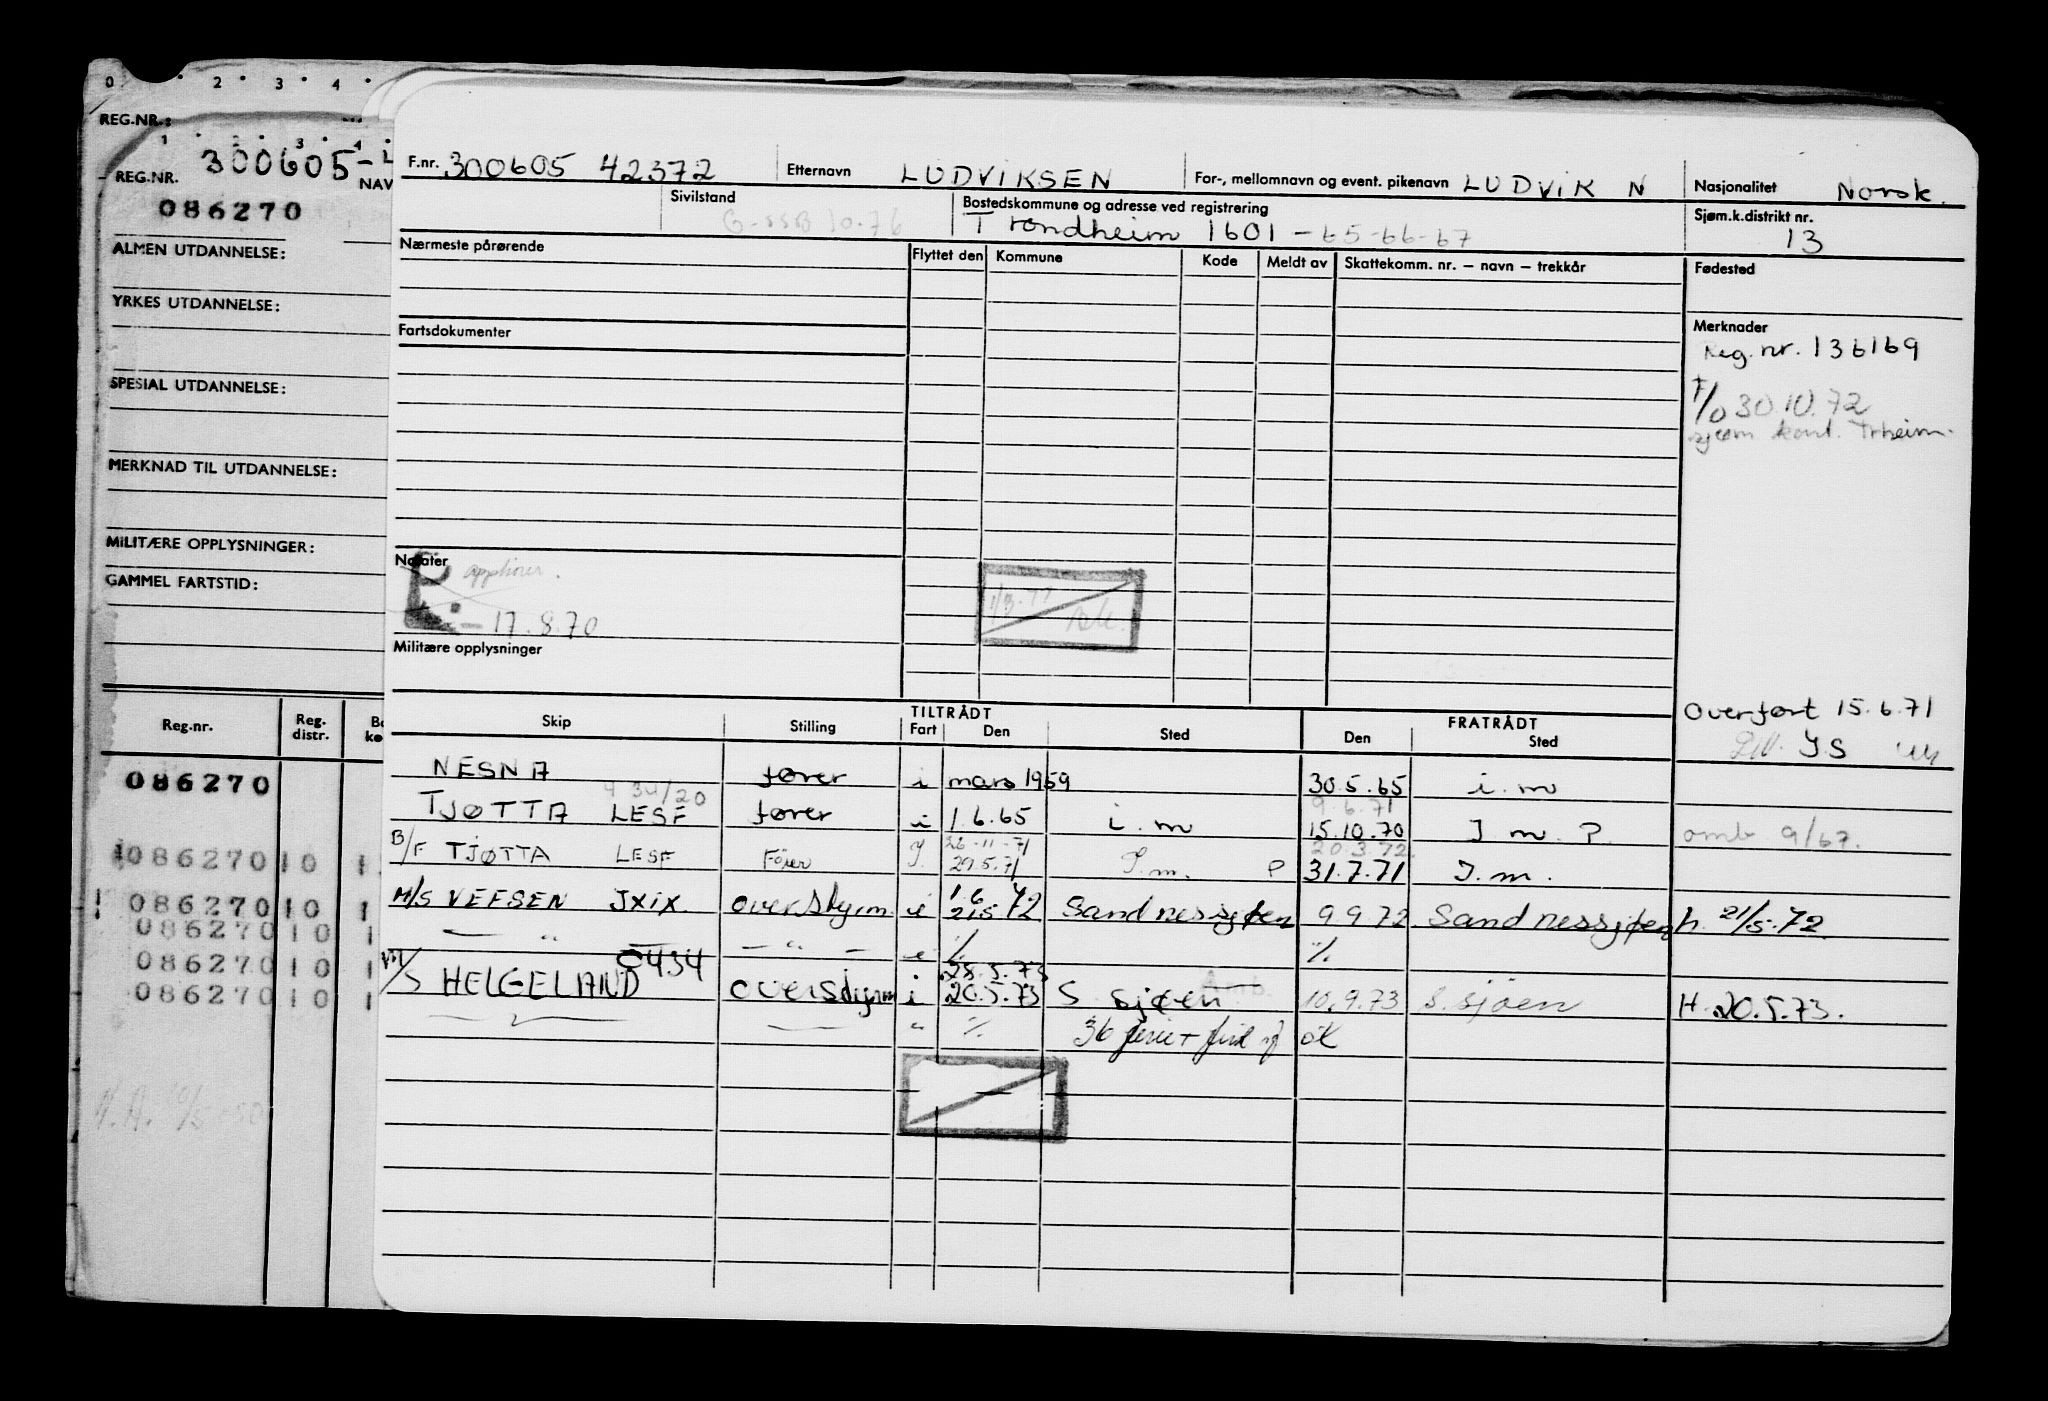 0 2 3 4
REG.NR.:
1 2 3 4
REG.NR. 300605-L
NAV
086270
ALMEN UTDANNELSE:
YRKES UTDANNELSE:
SPESIAL UTDANNELSE:
MERKNAD TIL UTDANNELSE:
MILITÆRE OPPLYSNINGER:
GAMMEL FARTSTID:
Reg.nr. Reg. distr. Bo ko
086270
086270 10 1
086270 10 1
086270 10 1
086270 10 1
086270 10 1
F.nr. 300605 42372 Etternavn LUDVIKSEN For-, mellomnavn og event. pikenavn LUDVIK N Nasjonalitet Norsk.
Sivilstand G-SSB 10.76 Bostedskommune og adresse ved registrering Trondheim 1601 - 65-66-67 Sjøm.k.distrikt nr. 13
Nærmeste pårørende Flyttet den Kommune Kode Meldt av Skattekomm. nr. – navn – trekkår Fødested
Fartsdokumenter Merknader
Reg.nr. 136169
F/O 30.10.72
sjøm kont. Trheim.
Notater opphører.
17.8.70
1/3.77
Militære opplysninger
Overført 15.6.71
Skip Stilling TILTRÅDT Fart Den Sted FRATRÅDT Den Sted
NESNA fører i mars 1959 30.5.65 i.m
434/20 9.6.71
TJØTTA LESF fører i 1.6.65 i.m 15.10.70 I m. P. omb 9/67.
26-11-71 20.3.72.
B/F TJØTTA LESF Fører I. 29.5.71 I.m. P 31.7.71 I.m.
1.6
M/S VEFSEN JXIX. overstyrm. i 21.5 72 Sandnessjøen 9.9.72 Sandnessjøen h. 21/5-72.
— " — — " — i % %
0434 28.5.73
M/S HELGELAND overstyrm i 20.5.73 S sjøen Amb. 10.9.73 S.sjöen H. 20.5.73.
" % 36 ferie + ok